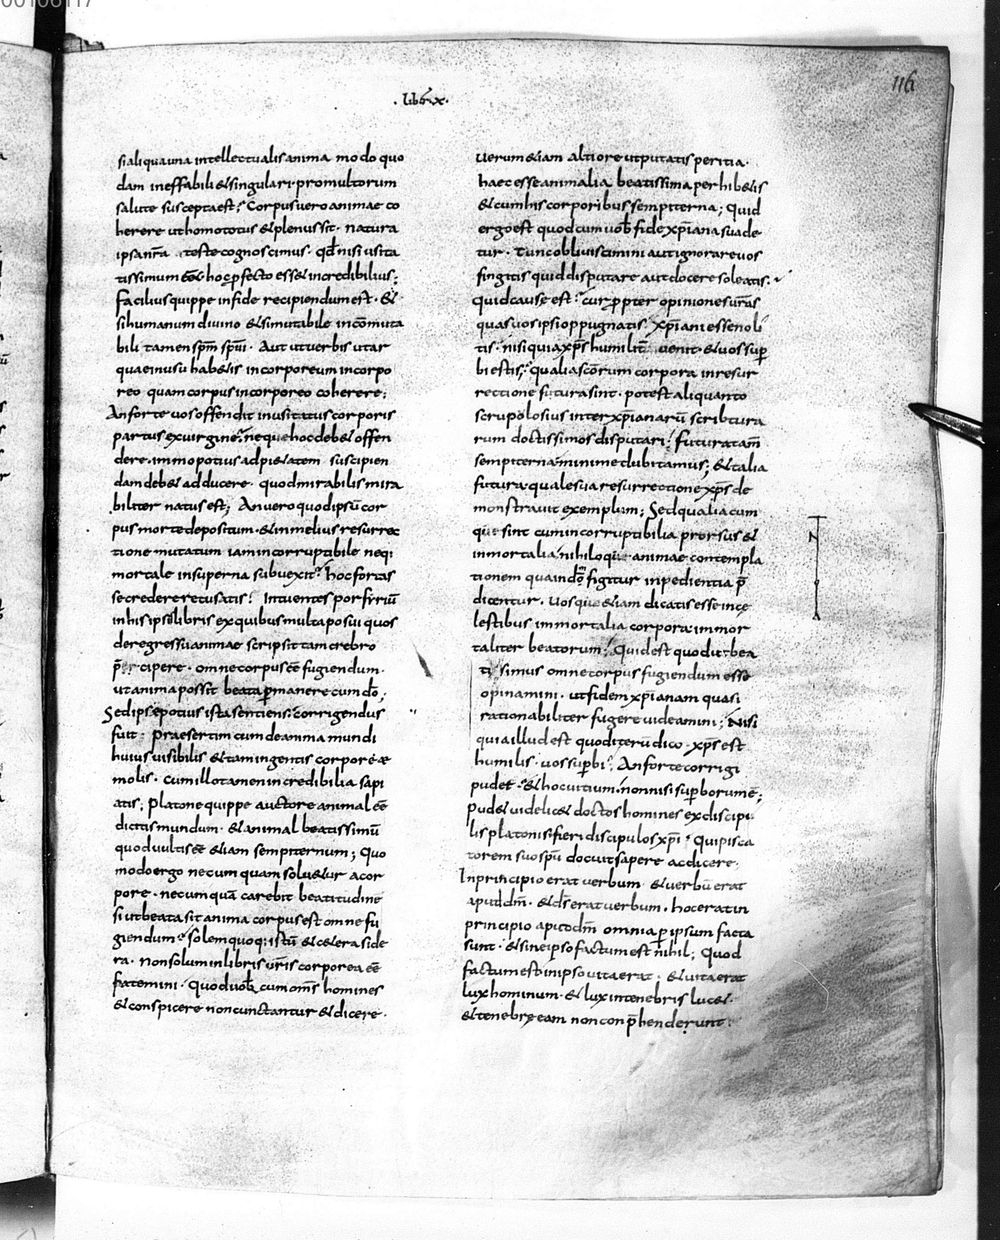 00106117
116
. Lib. x .
si aliqua una intellectualis anima modo quo
dam ineffabili & singulari pro multorum
salute suscepta est? Corpus vero animae co
herere ut homo totus & plenus sit. natura
ipsa nr̄a teste cognoscimus. qđ nisi usita
tissimum eēt hoc ꝓfecto ess& incredibilius;
facilius quippe in fide recipiendum est. &
si humanum divino & si mutabile incōmuta
bili tamen spm̄ spūi. Aut ut verbis utar
quae in usu hab&is incorporeum incorpo
reo quam corpus incorporeo coherere;
An forte vos offendit inusitatus corporis
partus ex virgine? neque hoc deb& offen
dere. immo potius ad pi&atem suscipien
dam deb& adducere. quod mirabilis mira
biliter natus est; An vero quod ipsū cor
pus morte depositum. & in melius resurrec
tione mutatum iam incorruptibile neq;
mortale in superna subvexit? hoc fortas
se credere recusatis? Intuentes porfyriū
in his ipsis libris ex quibus multa posui quos
de regressu animae scripsit tam crebro
p̄cipere. omne corpus eē fugiendum.
ut anima possit beata ꝑmanere cum dō;
Sed ipse potius ista sentiens. corrigendus
fuit. praesertim cum de anima mundi
huius visibilis & tam ingentis corporeae
molis. cum illo tam incredibilia sapi
atis; platone quippe auctore animal eē
dicitis mundum. & animal beatissimū
quod vultis eē &iam sempiternum; Quo
modo ergo nec umquam solu&ur a cor
pore. nec umquā carebit beatitudine
si ut beata sit anima corpus est omne fu
giendum? solem quoq; istū & c&era side
ra. non solum in libris vr̄is corporea eē
fatemini. quod vobisc̄ cum oms̄ homines
& conspicere non cunctantur & dicere.
verum &iam altiore ut putatis peritia.
haec esse animalia beatissima perhib&is
& cum his corporibus sempiterna; Quid
ergo est quod cum vob̄ fides xp̄iana suade
tur. Tunc obliviscimini aut ignorare vos
fingitis quid disputare aut docere soleatis.
quid cause est? cur ꝓpter opiniones vr̄as
quas vos ipsi oppugnatis? xp̄iani esse noli
tis. nisi quia xp̄s humilit̄ venit. & vos suꝑ
bi estis? qualia scōrum corpora in resur
rectione futura sint. potest aliquanto
scrupolosius inter xp̄ianarū scribtura
rum doctissimos disputari? futura tam̄
sempiterna minime dubitamus; & talia
futura quale sua resurrectione xp̄s de
monstravit exemplum; Sed qualiacum
que sint cum incorruptibilia prorsus &
inmortalia nihiloque animae contempla
tionem qua in dō figitur inpedientia p̄
dicentur. vosque &iam dicatis esse in ce
lestibus immortalia corpora immor
taliter beatorum? Quid est quod ut bea
ti simus omne corpus fugiendum esse
opinamini. ut fidem xp̄ianam quasi
rationabiliter fugere videamini; Nisi
quia illud est quod iterū dico. xp̄s est
humilis. vos suꝑbi? An forte corrigi
pud&? & hoc vitium. non nisi suꝑborum ē;
pud& videlic& doctos homines ex discipu
lis platonis fieri discipulos xp̄i? Qui pisca
torem suo spū docuit sapere ac dicere.
In principio erat verbum. & verbū erat
aput dm̄. & ds̄ erat verbum. hoc erat in
principio aput dm̄ omnia ꝑ ipsum facta
sunt. & sine ipso factum est nihil; Quod
factum est in ipso vita erat. & vita erat
lux hominum. & lux in tenebris luc&.
& tenebrę eam non conp̄henderunt.